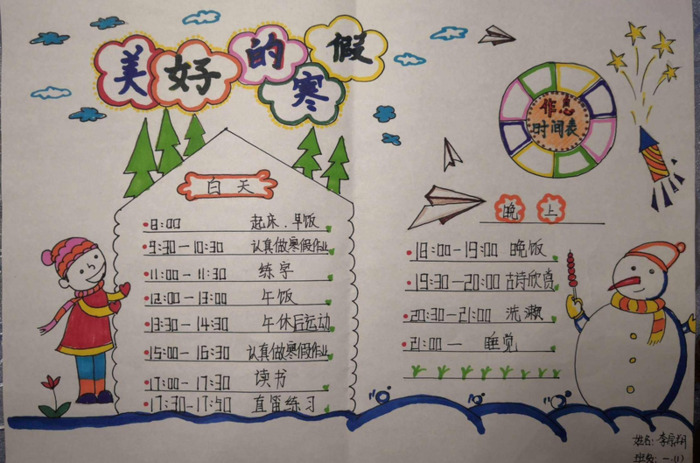 美好的寒假
作息
时间表
白天
8:00 起床、早饭
9:30-10:30 认真做寒假作业
11:00-11:30 练字
12:00-13:00 午饭
13:30-14:30 午休后运动
15:00-16:30 认真做寒假作业
17:00-17:30 读书
17:30-17:50 直笛练习
晚上
18:00-19:00 晚饭
19:30-20:00 古诗欣赏
20:30-21:00 洗漱
21:00— 睡觉
姓名:李
班级:一.(1)